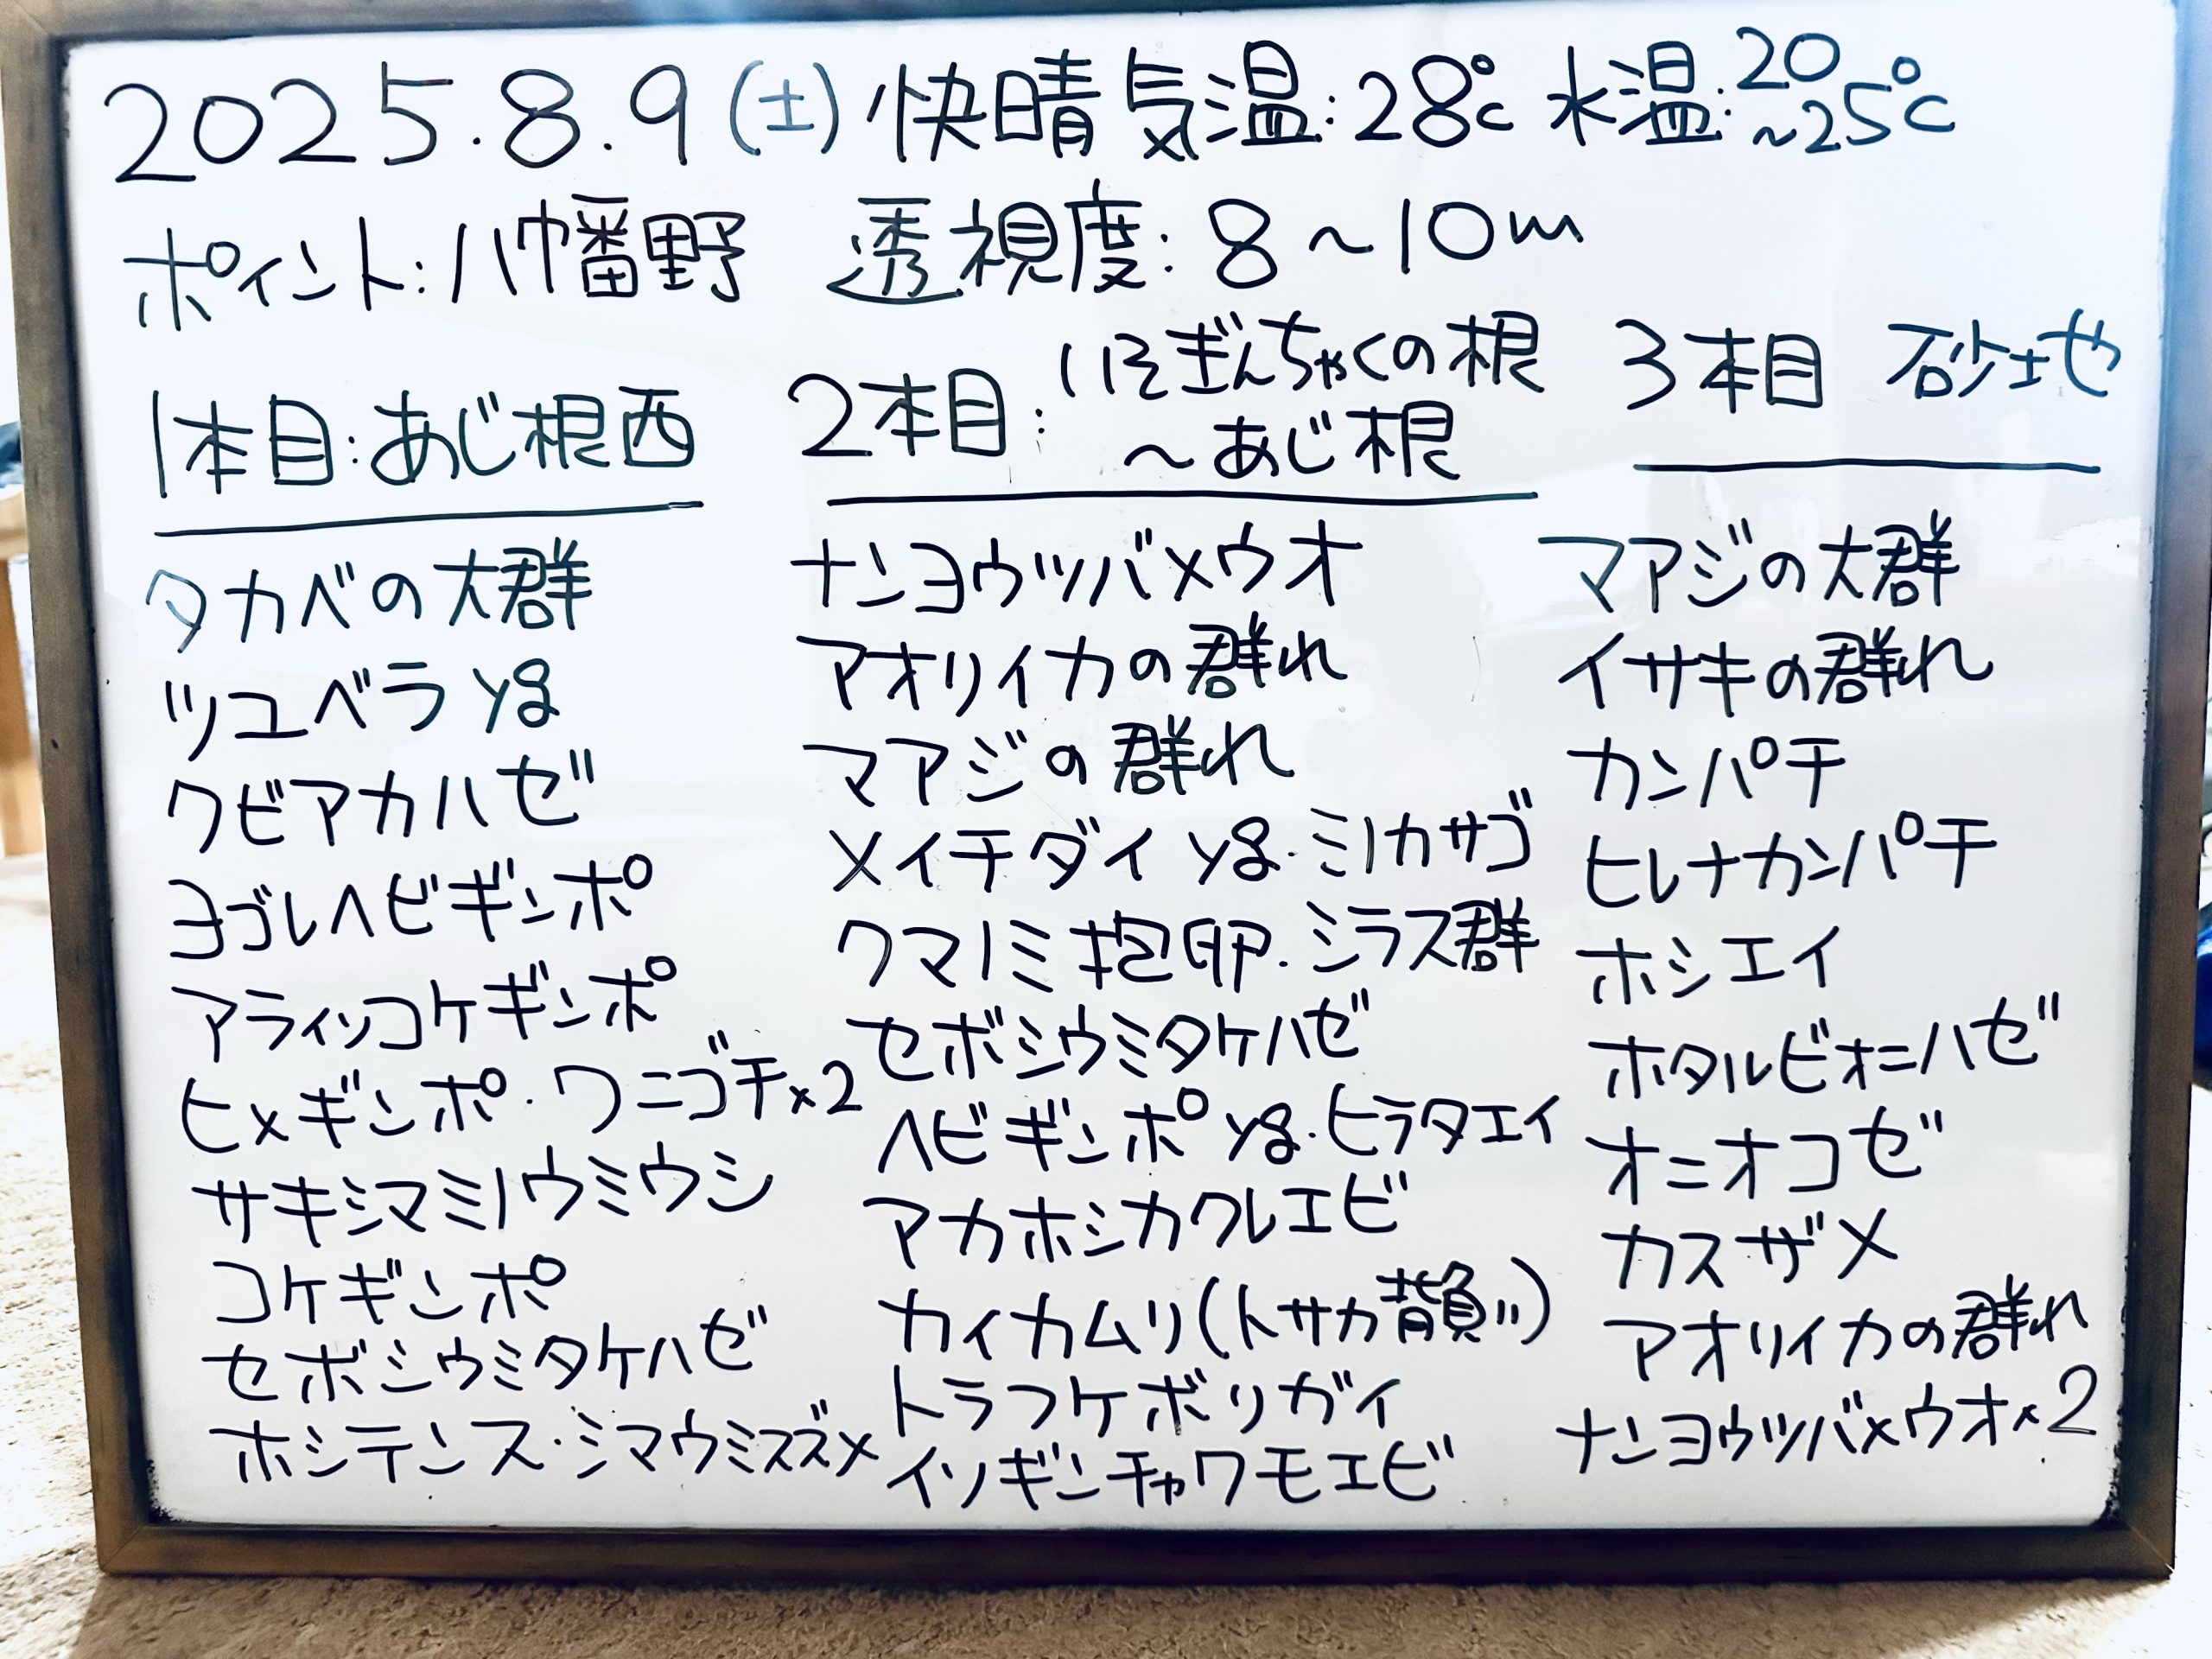 2025.8.9(土)快晴 気温:28℃ 水温:20~25℃
ポイント:八幡野 透視度:8~10m
1本目:あじ根西
タカベの大群
ツユベラyg
クビアカハゼ
ヨゴレヘビギンポ
アライソコケギンポ
ヒメギンポ・ワニゴチ×2
サキシマミノウミウシ
コケギンポ
セボシウミタケハゼ
ホシテンス・シマウミスズメ
2本目:いそぎんちゃくの根
~あじ根
ナンヨウツバメウオ
アオリイカの群れ
マアジの群れ
メイチダイyg・ミノカサゴ
クマノミ抱卵・シラス群
セボシウミタケハゼ
ヘビギンポyg・ヒラタエイ
アカホシカクレエビ
カイカムリ(トサカ背負い)
トラフケボリガイ
イソギンチャクモエビ
3本目 砂地
マアジの大群
イサキの群れ
カンパチ
ヒレナカンパチ
ホシエイ
ホタルビオニハゼ
オニオコゼ
カスザメ
アオリイカの群れ
ナンヨウツバメウオ×2